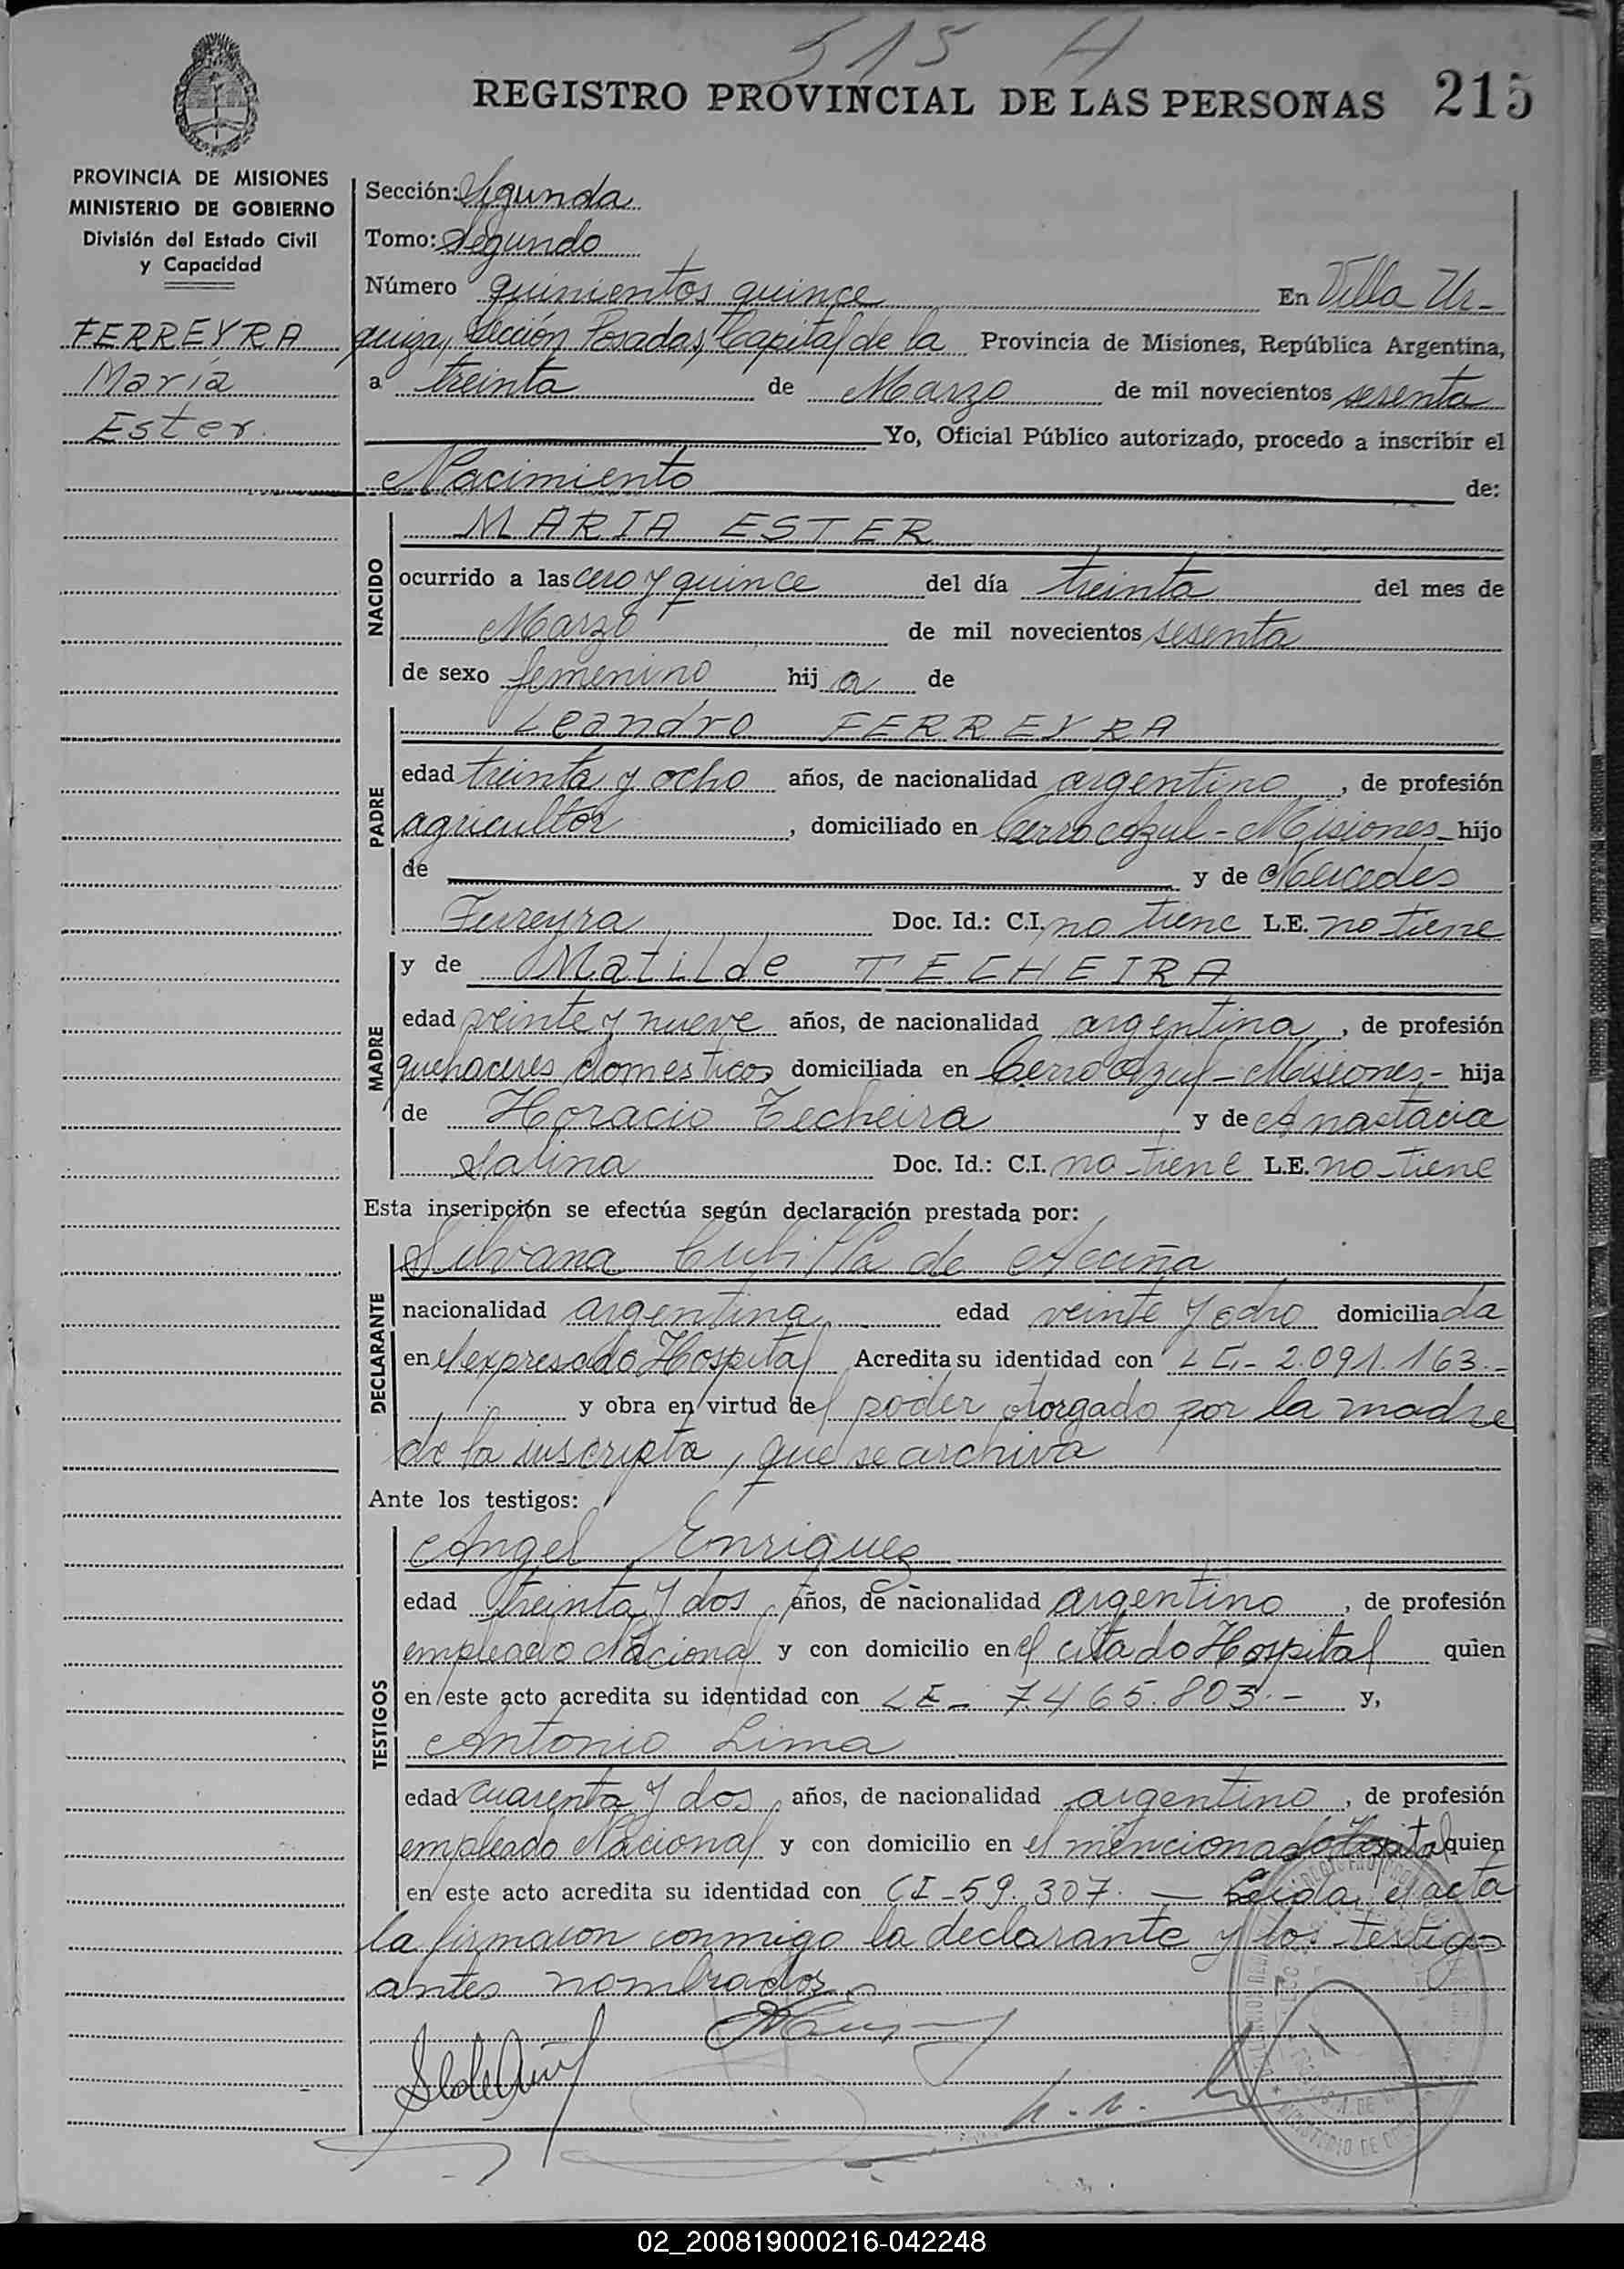 515 H
REGISTRO PROVINCIAL DE LAS PERSONAS 215
PROVINCIA DE MISIONES
MINISTERIO DE GOBIERNO
División del Estado Civil
y Capacidad
FERREYRA
María
Ester.
Sección: Segunda
Tomo: Segundo
Número quinientos quince En Villa Ur-
quiza, Sección Posadas, Capital de la Provincia de Misiones, República Argentina,
a treinta de Marzo de mil novecientos sesenta
Yo, Oficial Público autorizado, procedo a inscribir el
Nacimiento de:
NACIDO
MARIA ESTER
ocurrido a las cero y quince del día treinta del mes de
Marzo de mil novecientos sesenta
de sexo femenino hija de
PADRE
Leandro FERREYRA
edad treinta y ocho años, de nacionalidad argentino, de profesión
agricultor, domiciliado en Cerro Azul - Misiones - hijo
de y de Mercedes
Ferreyra Doc. Id.: C.I. no tiene L.E. no tiene
MADRE
y de Matilde TECHEIRA
edad veinte y nueve años, de nacionalidad argentina, de profesión
quehaceres domesticos domiciliada en Cerro Azul - Misiones - hija
de Horacio Techeira y de Anastacia
Salina Doc. Id.: C.I. no tiene L.E. no tiene
Esta inscripción se efectúa según declaración prestada por:
DECLARANTE
Silvana Cubilla de Acuña
nacionalidad argentina edad veinte y ocho domiciliada
en el expresado Hospital Acredita su identidad con L C - 2.091.163.-
y obra en virtud del poder otorgado por la madre
de la inscripta, que se archiva
Ante los testigos:
TESTIGOS
Angel Enriquez
edad treinta y dos años, de nacionalidad argentino, de profesión
empleado Nacional y con domicilio en el citado Hospital quien
en este acto acredita su identidad con LE - 7.465.803.- y,
Antonio Lima
edad cuarenta y dos años, de nacionalidad argentino, de profesión
empleado Nacional y con domicilio en el mencionado Hospital quien
en este acto acredita su identidad con CI - 59.307. — Leida el acta
la firmaron conmigo la declarante y los testigos
antes nombrados
02_200819000216-042248